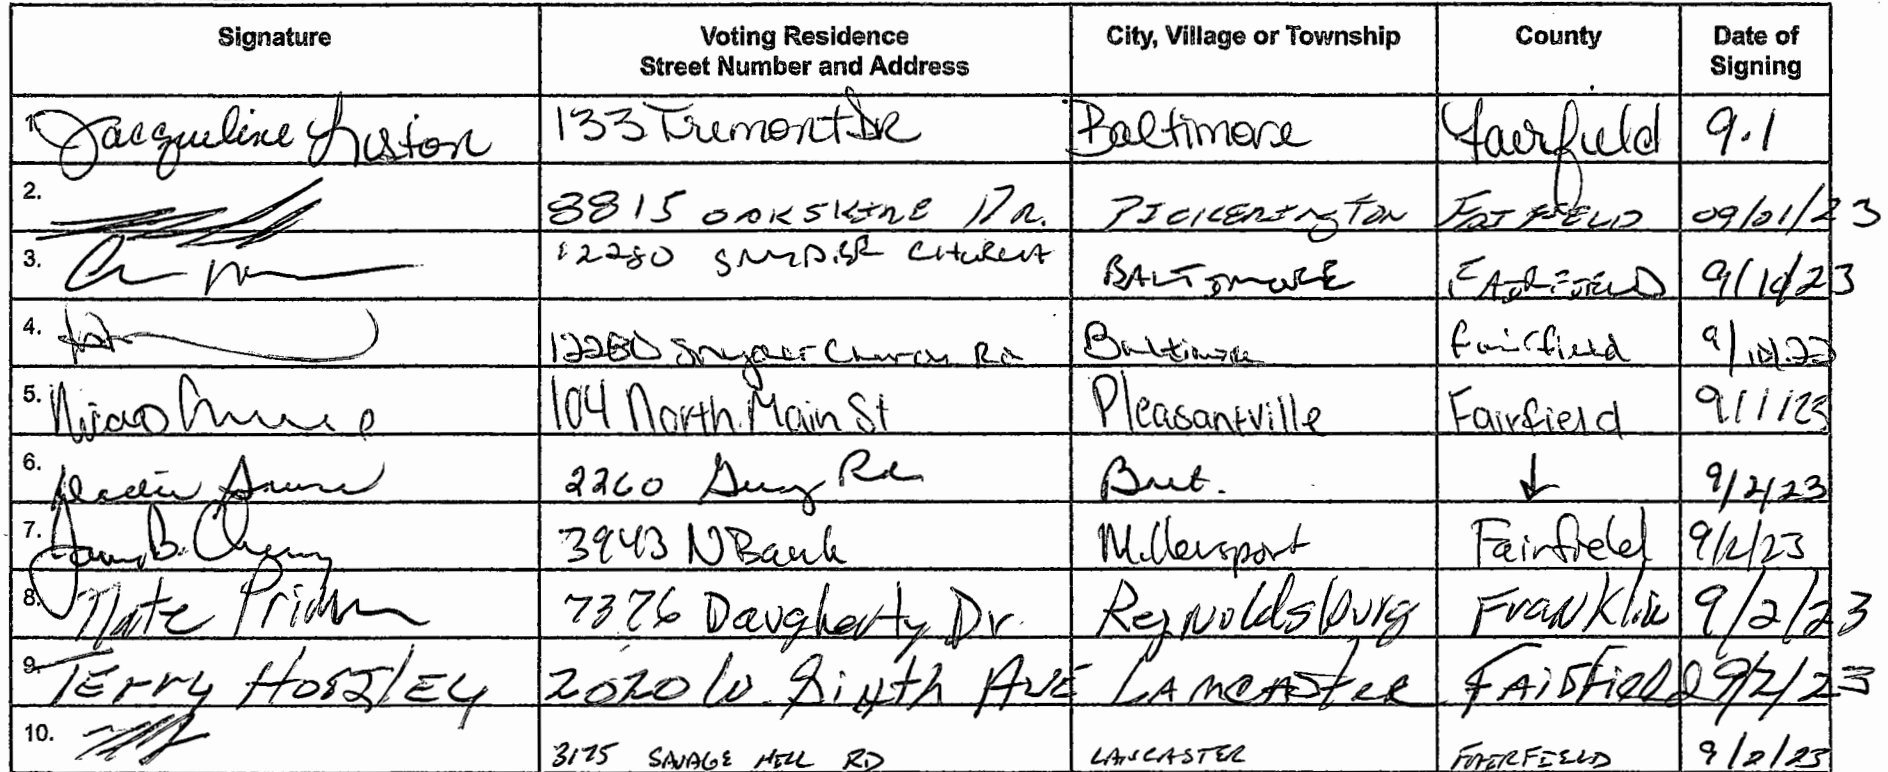 Signature Voting Residence Street Number and Address City, Village or Township County Date of Signing
1. Jacqueline Liston 133 Tremont DR Baltimore Fairfield 9.1
2. 8815 OAKSKIRE DR. PICKERINGTON FAIRFIELD 09/01/23
3. 12280 SNYDER CHURCH BALTIMORE FAIRFIELD 9/10/23
4. 12280 Snyder Church Rd Baltimore Fairfield
5. 104 North Main St Pleasantville Fairfield 9/1/23
6. 2260 Rd ↓ 9/2/23
7. B. 3943 N Bank Millersport Fairfield 9/2/23
8. Nate 7376 Daugherty Dr. Reynoldsburg Franklin 9/2/23
9. TERRY HORSLEY 2020 W. Sixth AVE LANCASTER FAIRField 9/2/23
10. 3175 SAVAGE HILL RD LANCASTER FAIRFIELD 9/2/23